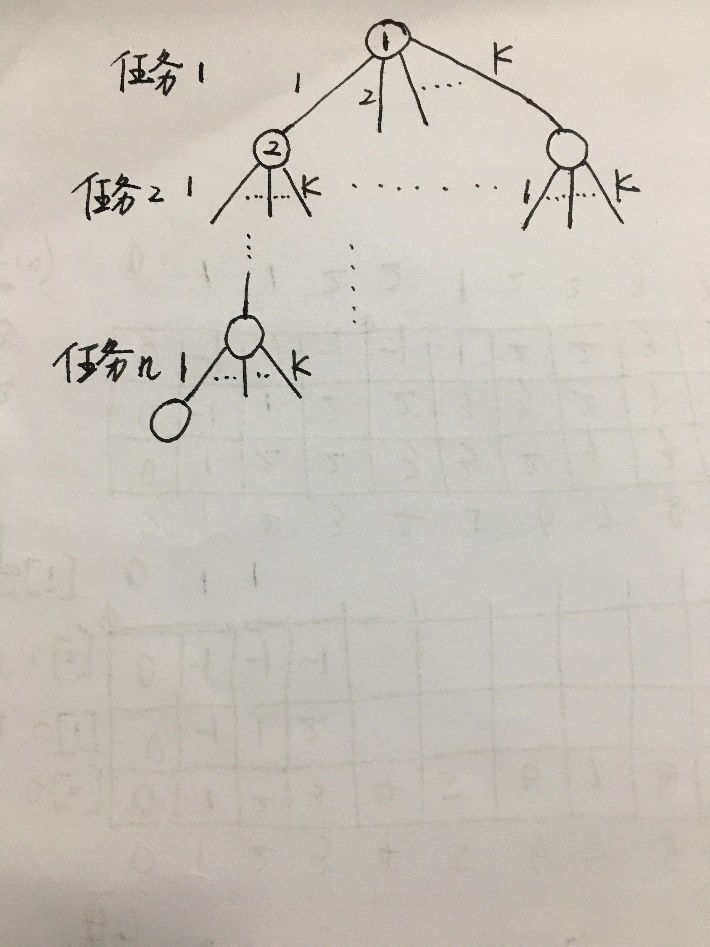 1
任务1 1 2 ····· K
2
任务2 1 ····· K ······· 1 ····· K
任务n 1 ··· ·· K